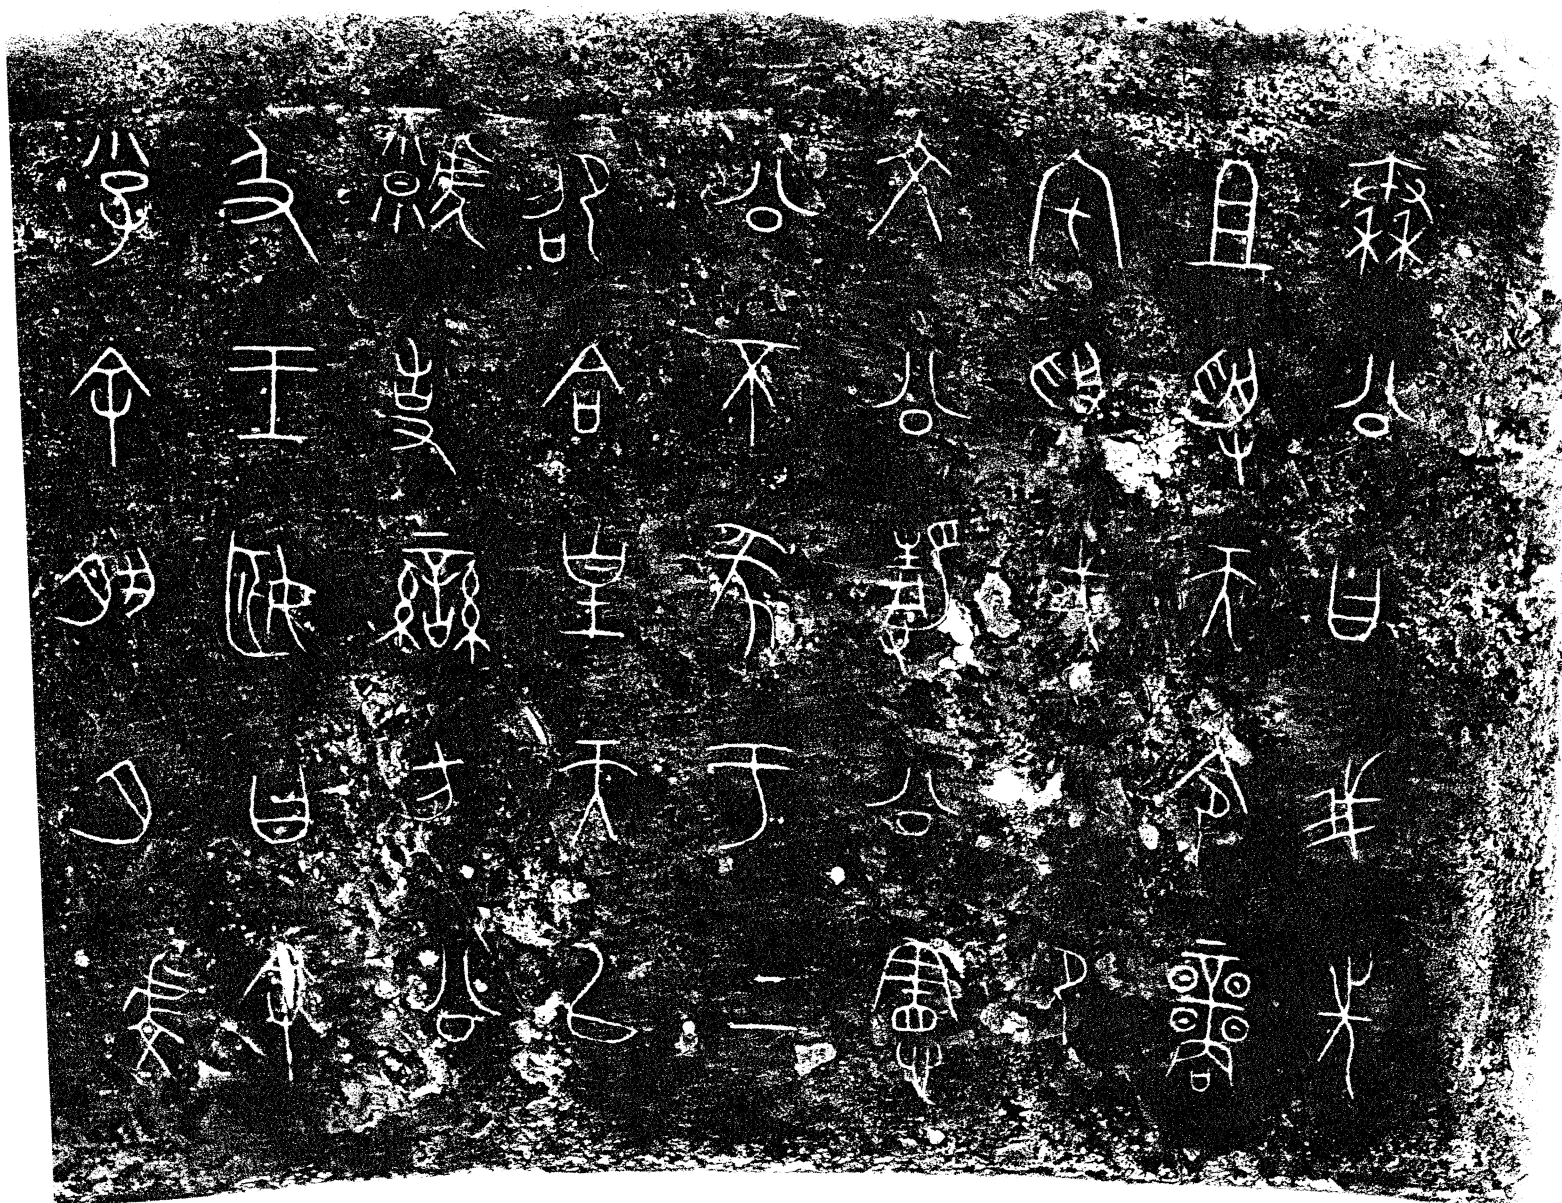 秦公曰我先
且受天令商
宅受或卲
文公靜公憲
公不㒸于上
卲合皇天以
虩事䜌方公
及王姬曰余
小子余夙夕虔